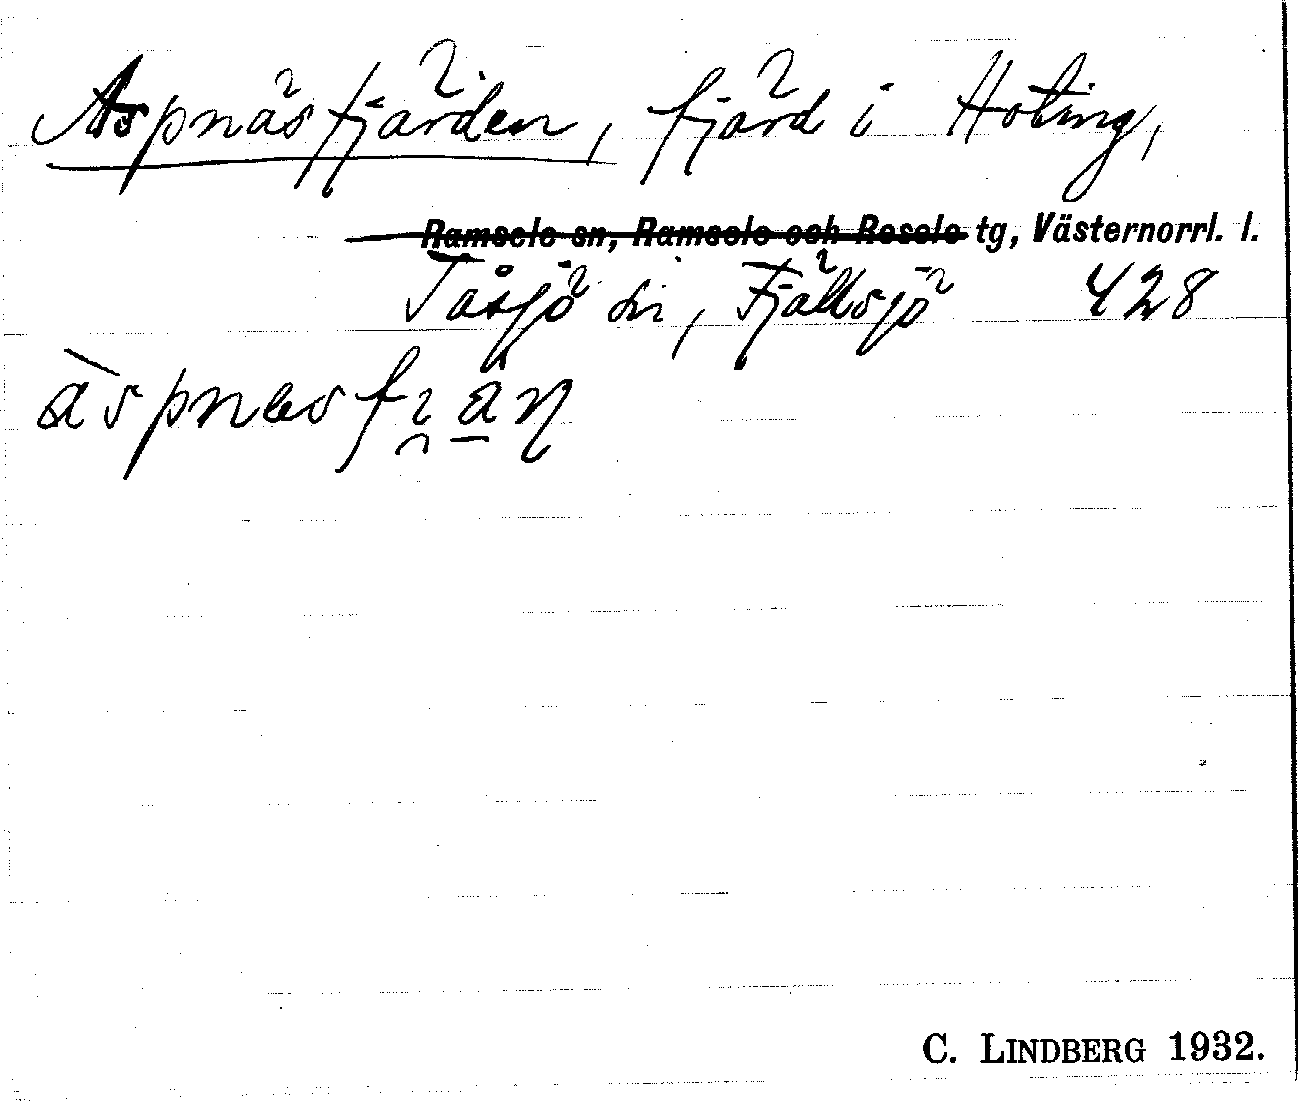 Aspnäsfjärden, fjärd i Hoting,
Ramsele sn, Ramsele och Resele tg, Västernorrl. l.
Tåsjö sn, Fjällsjö 428
C. LINDBERG 1932.